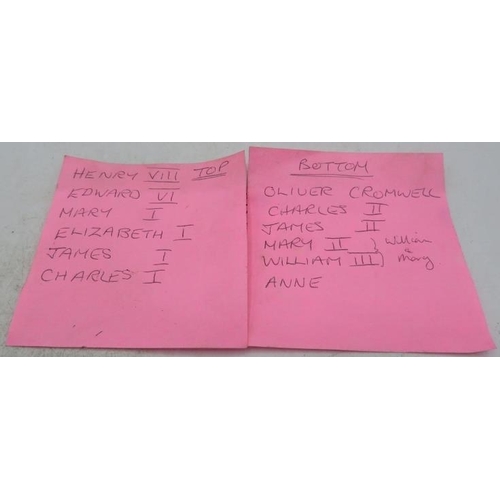 HENRY VIII TOP
EDWARD VI
MARY I
ELIZABETH I
JAMES I
CHARLES I
BOTTOM
OLIVER CROMWELL
CHARLES II
JAMES II
MARY II } William
WILLIAM III } & Mary
ANNE